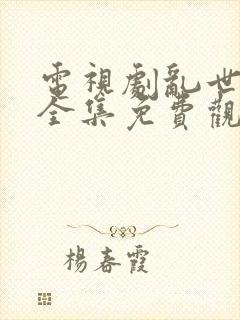 電視劇亂世
全集免費觀
楊春霞